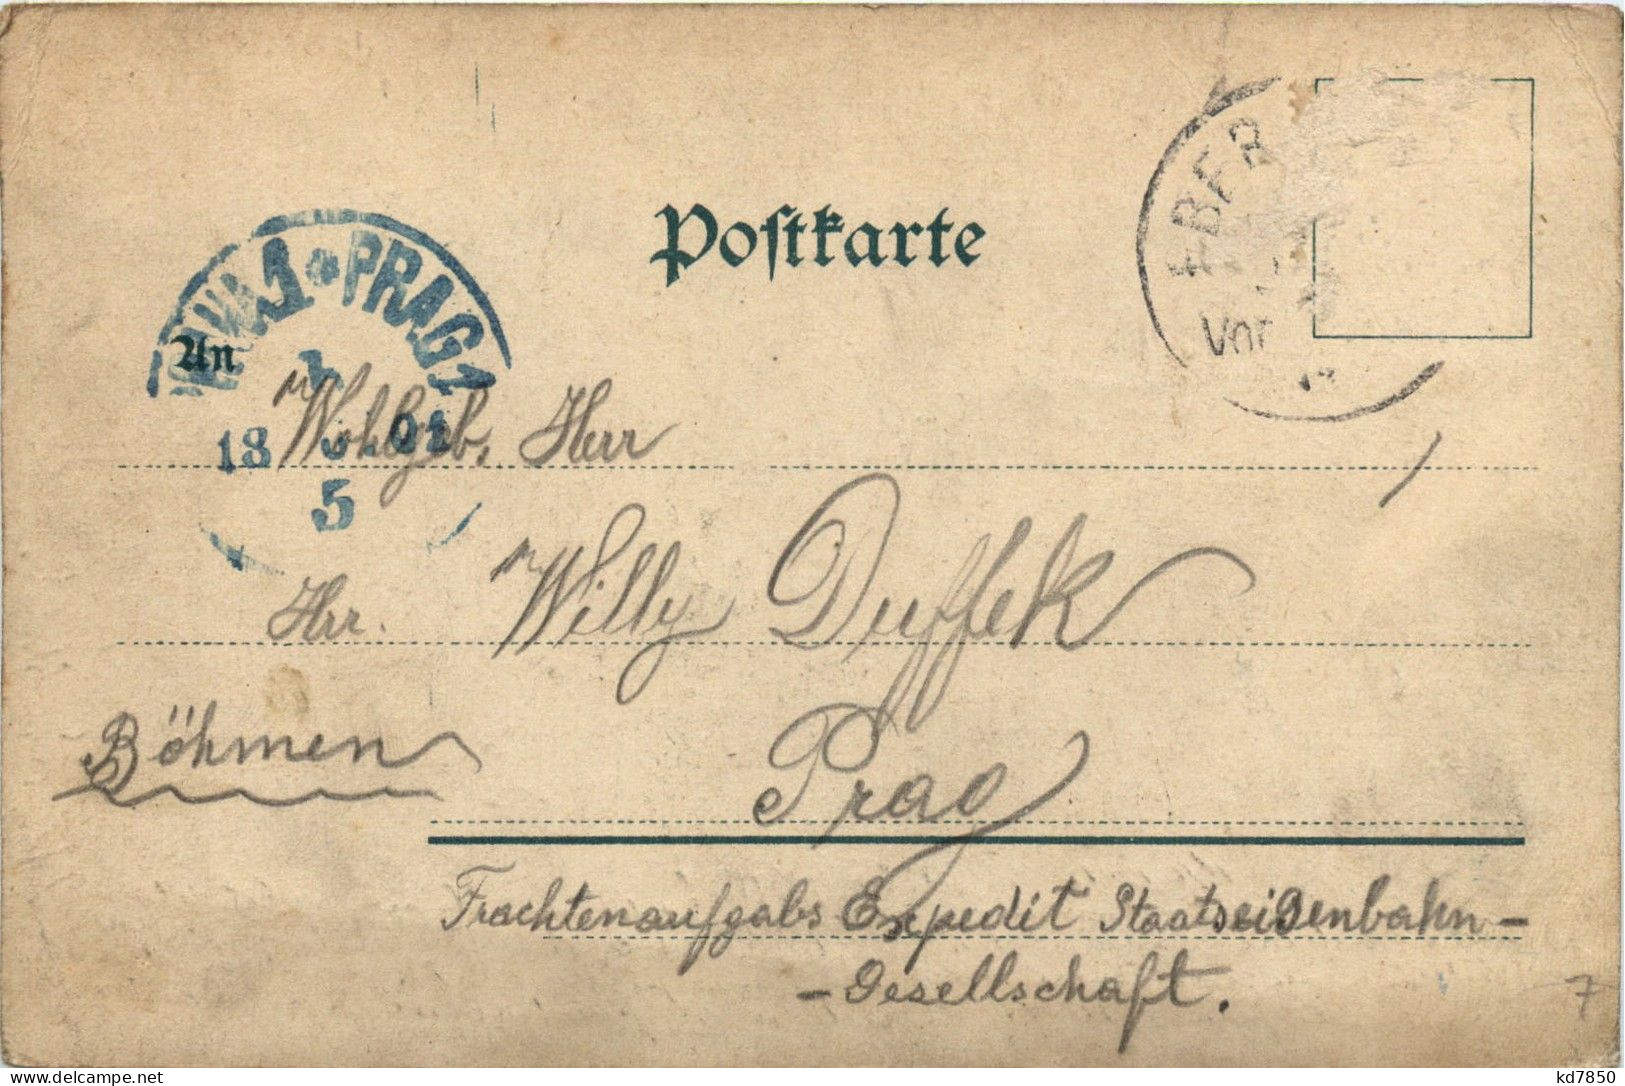 Postkarte
BER
Vor
PRAHA 1 * PRAG 1
1
18 3 01
5
An
Wohlgeb. Herr
Herr. Willy Duffek
Böhmen
Prag
Frachtenaufgabs Expedit Staatseisenbahn-
-Gesellschaft.
7
kd7850